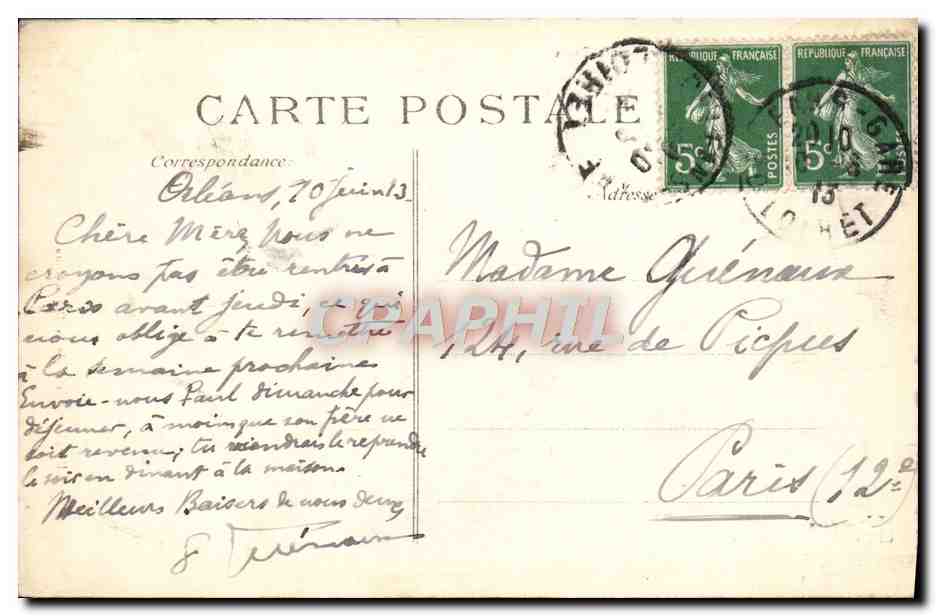 CARTE POSTALE
REPUBLIQUE FRANÇAISE
5c
POSTES
REPUBLIQUE FRANÇAISE
5c
LOIRET
GARE
20 10
13
LOIRET
Correspondance
Adresse
Orléans, 10 juin 13
Chère Mère, Nous ne
croyons pas être rentrés à
Paris avant jeudi, ce qui
nous oblige à te remettre
à la semaine prochaine
Envoie-nous Paul dimanche pour
déjeuner, à moins que son frère ne
soit revenu; tu viendrais le reprendre
le soir en dinant à la maison.
Meilleurs Baisers de nous deux
Madame Guénaux
124, rue de Picpus
Paris (12e)
CPAPHIL